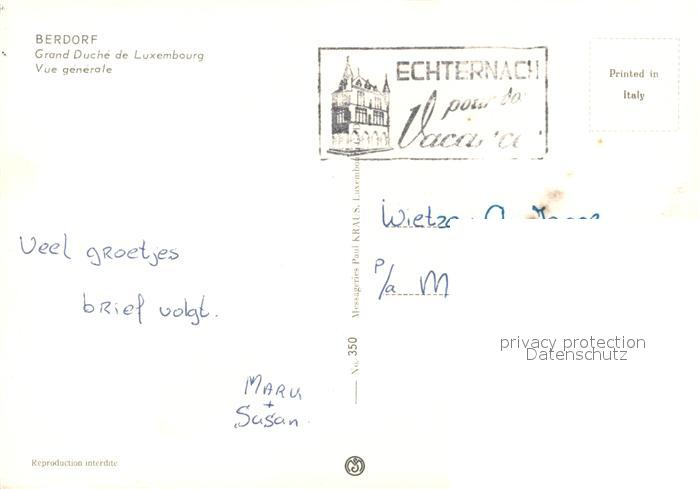 BERDORF
Grand Duché de Luxembourg
Vue générale
ECHTERNACH
pour vos
Vacances
Printed in
Italy
Wietze
P/a M
Veel groetjes
brief volgt.
Mary
+
Susan.
No. 350 Messageries Paul KRAUS, Luxembourg
privacy protection
Datenschutz
Reproduction interdite